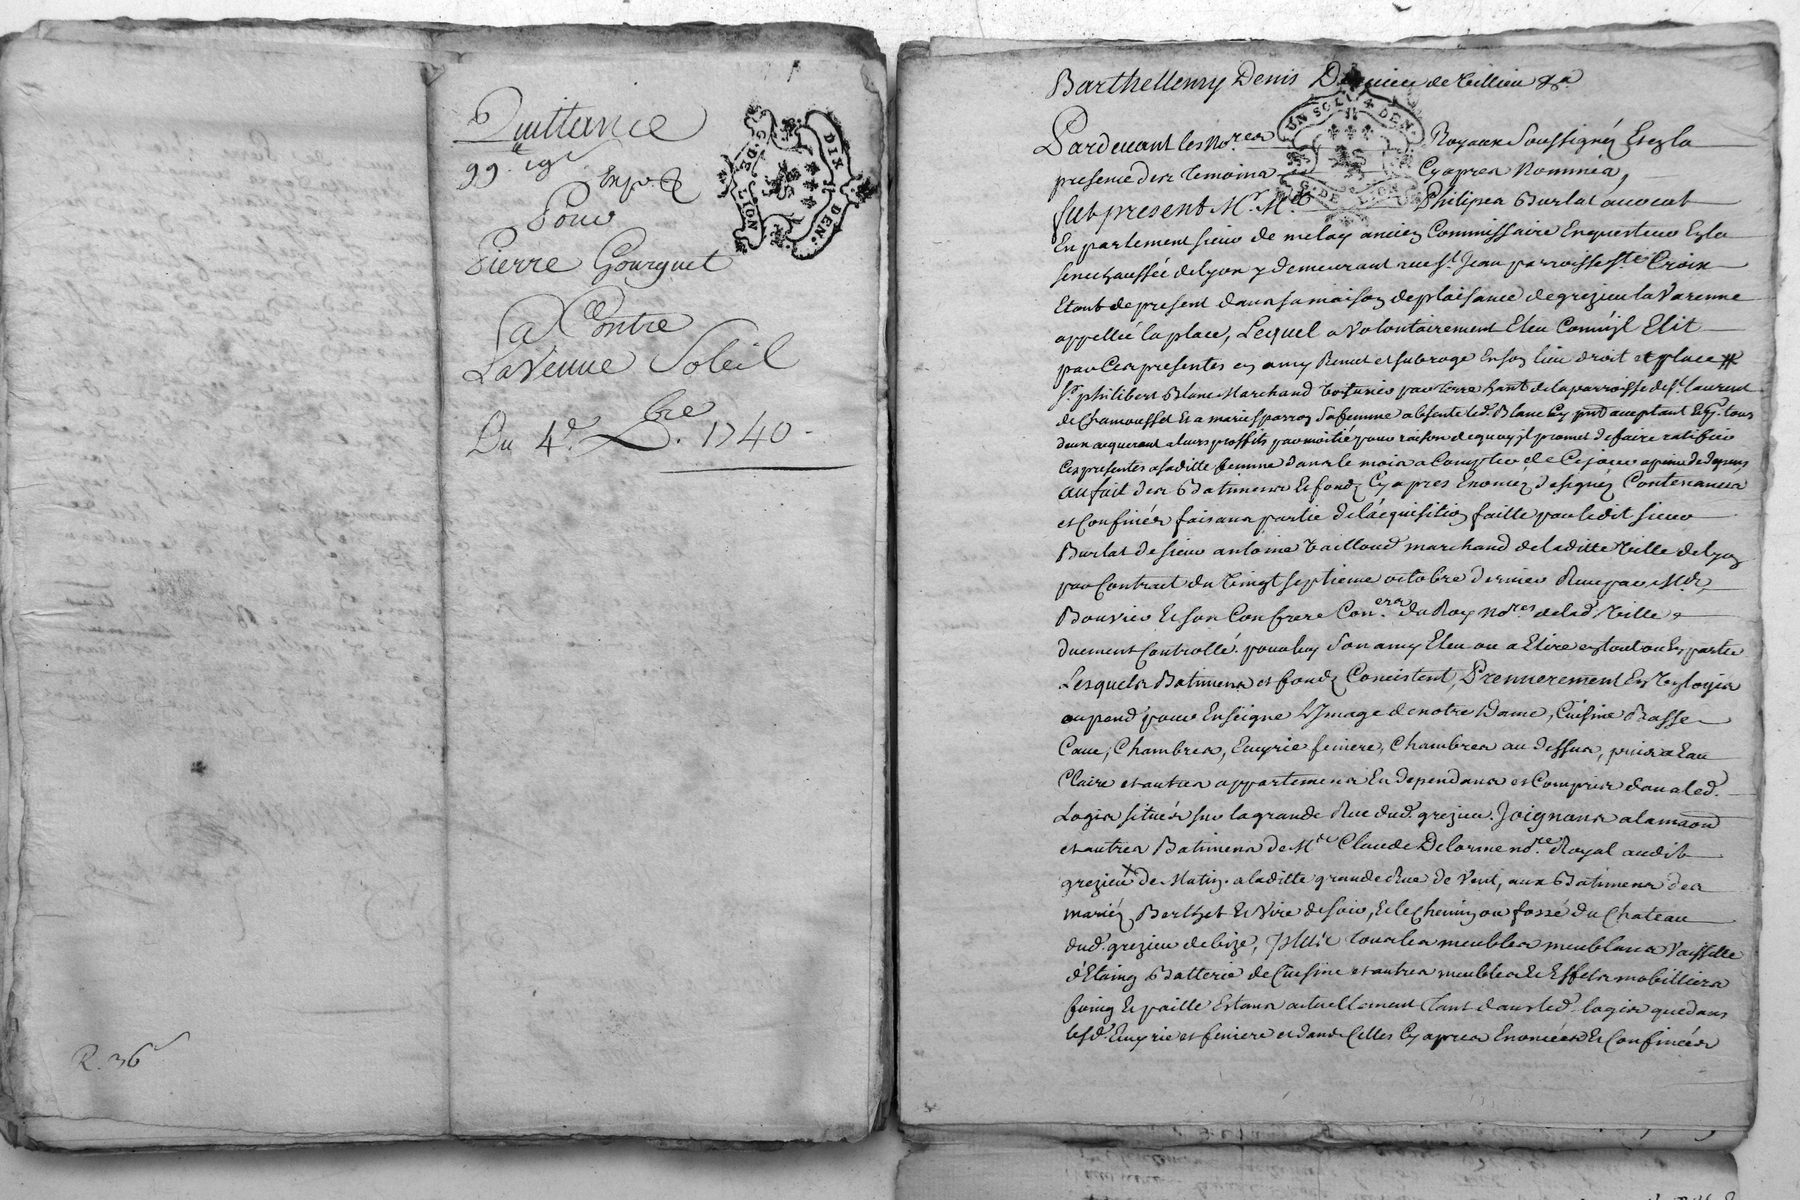 Quittance
99.
Pour
Pierre Gourguet
Contre
La Veuve Soleil
Du 4e. Xbre. 1740.
G. DE LION
DIX DEN.
R. 36
Barthellemy Denis
Pardevant les No.res
UN SOL 4 DEN.
G. DE LION
Royaux Soussignéz Et en la
presence des Temoins
Cy apres Nommés,
fut present Mr. Me
Philipes Burlat avocat
En parlement sieur de melay ancien Commissaire Enquesteur En la
senechaussée de lyon y demeurant rue St. Jean parroisse Ste. Croix
Etant de present dans sa maison de plaisance de grezieu la Varenne
appellée la place, Lequel a volontairement Eleu Comme jl Elit
par Ces presentes en amy Remet et subroge En son lieu droit et place
Sr. philibert Blanc Marchand Voiturier par terre hant. de la parroisse de St. laurent
de Chamousset Et a marie sparron sa femme absente led. Blanc Cy pnt. acceptant
deux acquerant a leurs proffits par moitié pour raison de quoy jl promet de faire ratifier
Ces presentes a saditte femme dans le mois a Compter de Ce jour a peine de depens
au fait des Batimens Et fondz Cy apres Enoncez designez Contenances
et Confinés faisans partie de l'acquisition faitte par ledit sieur
Burlat de sieur antoine Taillaud marchand de laditte Ville de lyon
par Contrat du Vingt septieme octobre dernier Receu par Me.
Bouvier Et son Confrere Con.ers du Roy No.res de lad. Ville
duement Controllé. pour luy son amy Eleu ou a Elire en tout ou En partie
Lesquels Batimens et fondz Consistent, Premierement En Un logis
ou pend pour Enseigne L'Image de notre Dame, Cuisine Basse
Cave, Chambres, Ecuyrie feniere, Chambres au dessus, puis a Eau
Claire et autres appartemens En dependans et Compris dans led.
Logis situés sur la grande Rue dud. grezieu. Joignans a la maison
et autres Batimens de Me Claude Delorme no.re Royal audit
grezieu de Matin. a laditte grande Rue de Vent, aux Batimens des
mariéz Berthet Et Vire de soir, Et le Chemin ou fossé du Chateau
dud. grezieu de bize, Plus tous les meubles meublans Vaisselle
d'Etaing Batterie de Cuisine et autres meubles Et Effets mobilliers
foing Et paille Estans actuellement tant dans led. logis que dans
lesd. Ecuyrie et feniere et dans Celles Cy apres Enoncées Et Confinées